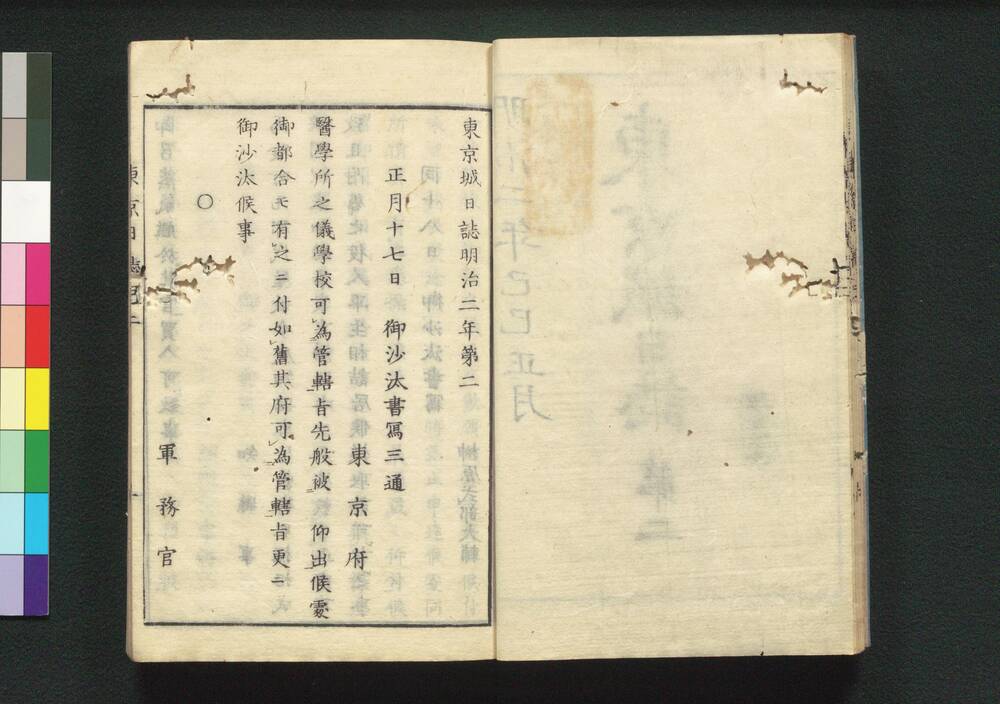 東京城日誌明治二年第二
正月十七日御沙汰書寫三通
東京府
醫學所之儀學校可為管轄旨先般被仰出候處
御都合モ有之ニ付如舊其府可為管轄旨更ニ
御沙汰候事
○
軍務官